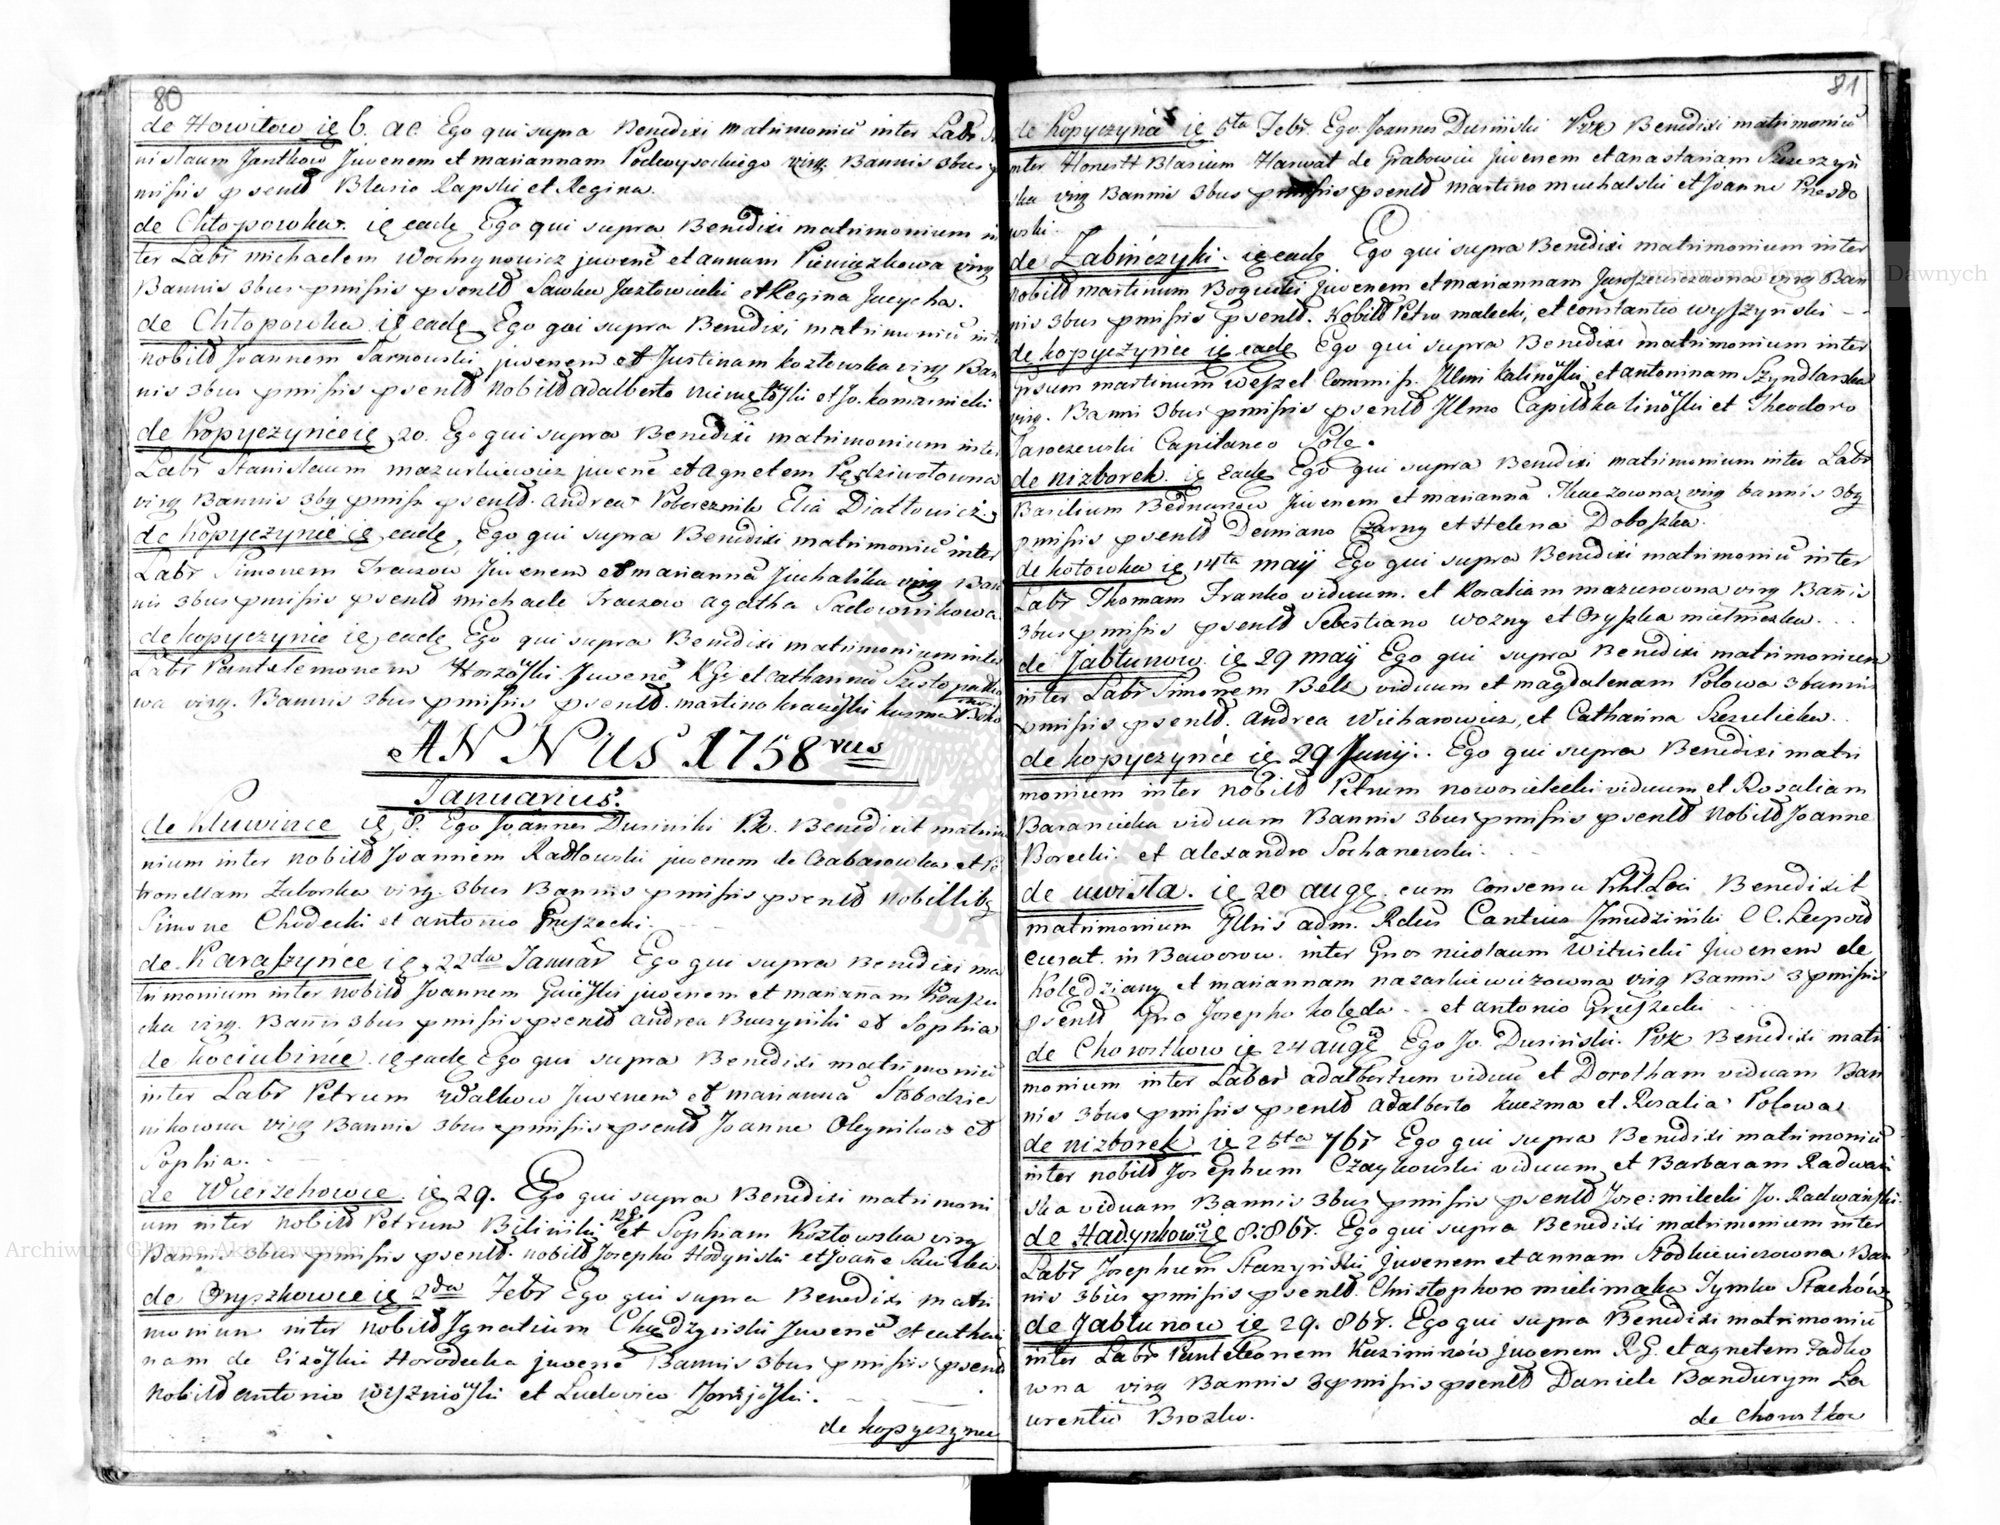 80
de Howitow ię 6. ac. Ego qui supra Benedixi matrimoniũ inter Labr
nislaum Jantkow Juvenem et mariannam Podwysockiego virg Bannis 3bus
missis psentb Blasio Rapski et Regina.
de Chłopowka. ię eadę Ego qui supra Benedixi matrimonium in
ter Labr michaelem Wochnynowicz juvenẽ et annam Pieniązkowa virg
Bannis 3bus pmissis psentb Sawka Jazłowiecki et Regina Jucycha.
de Chłopowka ię eadę Ego qui supra Benedixi matrimoniũ int
nobilb Joannem Tarnowski juvenem et Justinam kozłowska virg Ban
nis 3bus pmissis psentb nobilb adalberto et Jo. komarnicki
de Kopyczyńce ię 20. Ego qui supra Benedixi matrimonium inter
Labr Stanislaum mazurkiewicz juvenẽ et agnetem Pędziwołowna
virg Bannis 3bq pmiss psentb. andrea Pobereznik Elia Diałłowicz.
de kopyczyniẽ ię eadę, Ego qui supra Benedixi matrimoniũ inter
Labr Simonem Traczow Juvenem et mariannã Juchalska virg Ban
nis 3bus pmissis psentb michaele Traczow agatha Sadownikowa
de kopyczynie ię eadę Ego qui supra Benedixi matrimonium inter
Labr Pantelemonem Juvenẽ RG: et catharinã Szesto
wa virg. Bannis 3bus pmissis psentb. martino
ANNUS 1758vus
Januarius.
de Kluwince ię 8. Ego Joannes Dusinski Pk. Benedixit matrim
nium inter nobilb Joannem Radłowski juvenem de Czabarowka et Pe
tronellam Zaborska virg. 3bus Bannis pmissis psentb nobillibq
Simone Chodecki et antonio Gruszecki.
de Karaszyńce ię 22da Januar Ego qui supra Benedixi ma
trimonium inter nobilb Joannem juvenem et mariañam
cka virg. Bañis 3bus pmissis psentb andrea Buczyński et Sophia
de kociubińce. ię eadę Ego qui supra Benedixi matrimoniũ
inter Labr Petrum Walkow Juvenem et mariannã Słobodzie
nikowna virg Bannis 3bus pmissis psentb Joanne Oleynikow et
Sophia.
de Wierzchowce. ię 29. Ego qui supra Benedixi matrimoni
um inter nobilb Petrum Biliński RG. et Sophiam Kozłowska virg
Bannis 3bus pmissis psentb. nobilb Josepho Hodyński et Joañe
de Oryszkowce ię 2da Febr Ego qui supra Benedixi matri
monium inter nobilb Ignatium Juvenẽ et cathari
nam de Horodecka juvenẽ Bannis 3bus pmissis psentb
nobilb antonio et Ludovico
de kopyczynce
81
de kopyczyńce ię 5ta Febr. Ego Joannes Dusiński Pk Benedixi matrimoniũ
inter Honestt Blasium Harwat de Grabowiec juvenem et anastasiam Szczerzyń
ska virg Bannis 3bus pmissis psentb martino muchalski et Joanne Przesdo
wski.
de Zabińczyki. ię eadę Ego qui supra Benedixi matrimonium inter
nobilb martinum Bogucki juvenem et mariannam virg Ban
nis 3bus pmissis psentb. Nobilb Petro malecki, et constantio wyszyński
de kopyczyńce ię eadę Ego qui supra Benedixi matrimonium inter
Gpsum martinum weszel Commiss. Illmi kalinoski et antoninam Szyndlarska
virg. Banni 3bus pmissis psentb Illmo Capitb kalinoski et Theodoro
Jaroczewski Capitaneo Pole.
de nizborek. ię eadę Ego qui supra Benedixi matrimonium inter Labr
Basilium Bednarzow juvenem et mariannã Tkaczowna virg bannis 3bq
pmissis psentb Demiano Czarny et Helena Doboszka.
de kotowka ię 14ta may Ego qui supra Benedixi matrimoniũ inter
Labr Thomam Franko viduum. et Rosaliam mazurowna virg Bañis
3bus pmissis psentb Sebestiano wozny et Oryszka mielniczka.
de Jabłunow. ię 29 may Ego qui supra Benedixi matrimonium
inter Labr Simonem Bełz viduum et magdalenam Połowa 3bannis
pmissis psentb. andrea Wicharowicz, et Catharina
de kopyczyńce ię 29 Junij. Ego qui supra Benedixi matri
monium inter nobilb Petrum nowosielecki viduum et Rosaliam
Baraniecka viduam Bannis 3bus pmissis psentb Nobilb Joanne
Borecki. et alexandro Sochanewski.
de uwisła. ię 20 augę. cum consensu Loci Benedixit
matrimonium Illris adm. Rdus Cantius Zmudziński CC. Leopold
curat. in Baworow. inter Gnos nicolaum Witwicki juvenem de
Kolędziany et mariannam nazarkiewiczowna virg Bannis 3 pmissis
psentb Gno Josepho kolęda et antonio Gruszecki
de Chorostkow ię 24 augę Ego Jo. Dusiński. Pk Benedixi matri
monium inter Labor adalbertum viduũ et Dorotham viduam Ban
nis 3bus pmissis psentb adalberto kuczma et Rosalia Połowa
de nizborek ię 25ta 7br Ego qui supra Benedixi matrimoniũ
inter nobilb Josephum Czaykowski viduum et Barbaram Radwań
ska viduam Bannis 3bus pmissis psentb Jose: milecki Jo. Radwański.
de Hadynkowce ię 8. 8br. Ego qui supra Benedixi matrimonium inter
Labr Josephum Starzyński Juvenem et annam Słodkiewiczowna Ban
nis 3bus pmissis psentb. Christophoro mielimąka Tymko Stachów
de Jabłunow ię 29. 8br. Ego qui supra Benedixi matrimoniũ
inter Labr Panteleonem Kazimirów juvenem RG. et agnetem Fadko
wna virg Bannis 3 pmissis psentb Daniele Bandurym La
urentio Brozko.
de chorostkow
Archiwum Główne Akt Dawnych
Archiwum Główne Akt Dawnych